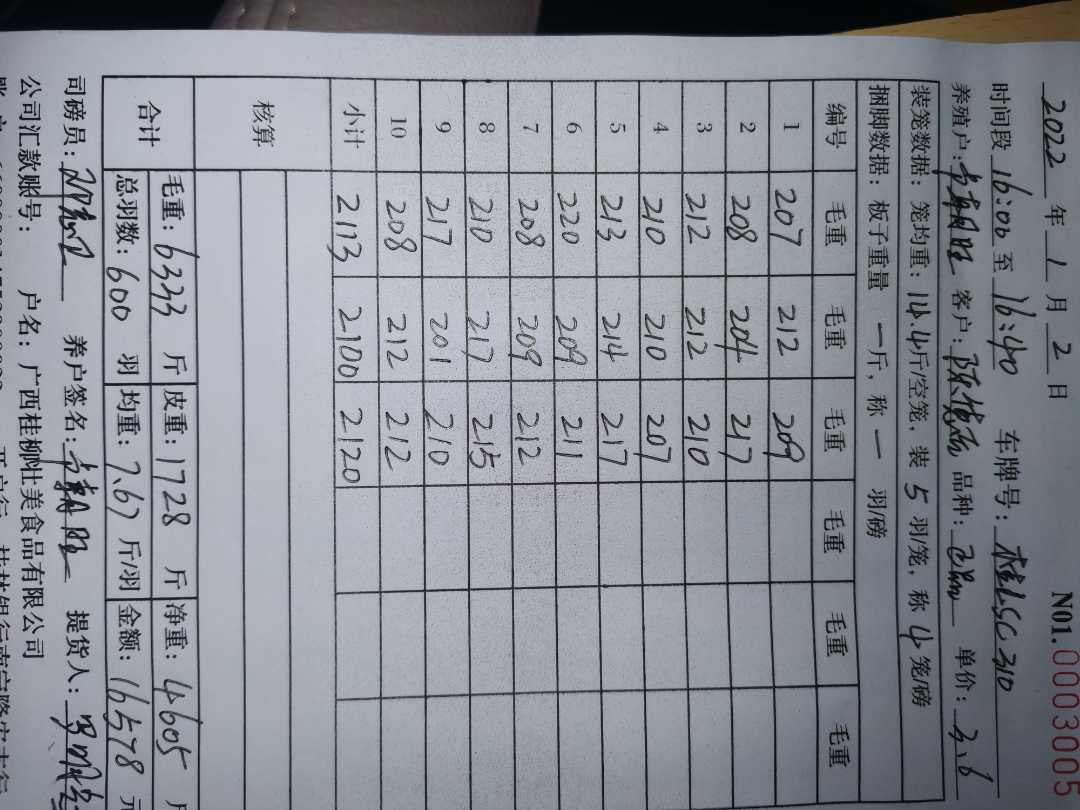 N01.0003005
2022 年 1 月 2 日
时间段 16:00 至 16:40 车牌号: 桂LSC310
养殖户: 客户: 品种: 单价: 3.6
装笼数据: 笼均重: 14.4斤/空笼, 装 5 羽/笼, 称 4 笼/磅
捆脚数据: 板子重量 一斤, 称 一 羽/磅
编号 毛重 毛重 毛重 毛重 毛重 毛重
1 207 212 209
2 208 204 217
3 212 212 210
4 210 210 207
5 213 214 217
6 220 209 211
7 208 209 212
8 210 217 215
9 217 201 210
10 208 212 212
小计 2113 2100 2120
核算
合计 毛重: 6333 斤 皮重: 1728 斤 净重: 4605
总羽数: 600 羽 均重: 7.67 斤/羽 金额: 16578 元
司磅员: 养户签名: 提货人:
公司汇款账号: 户名: 广西桂柳牡美食品有限公司